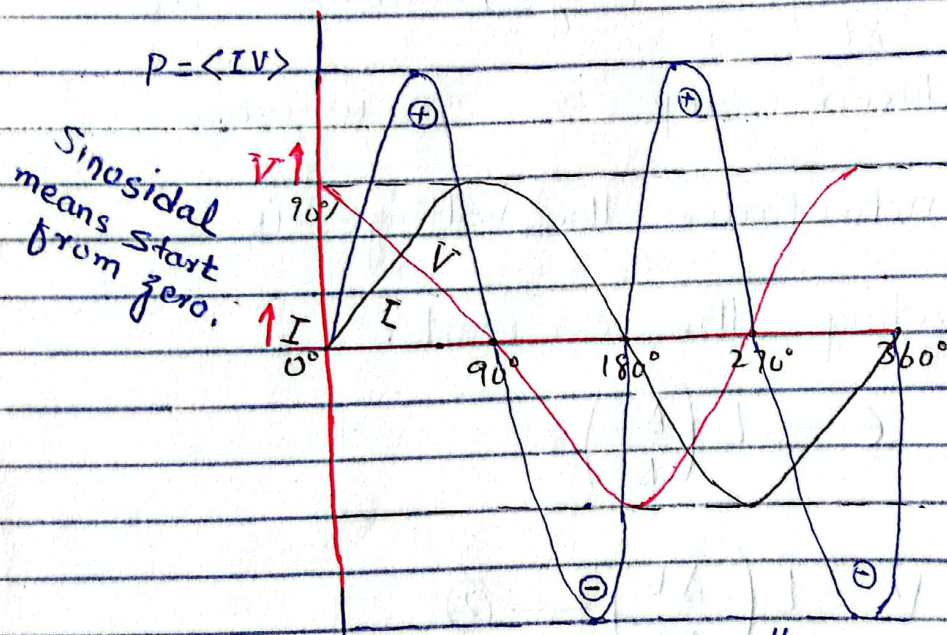 P = ⟨IV⟩
Sinusidal
means start
from zero.
V ↑
90°
↑ I
0°
V
I
⊕
⊕
⊖
⊖
90°
180°
270°
360°